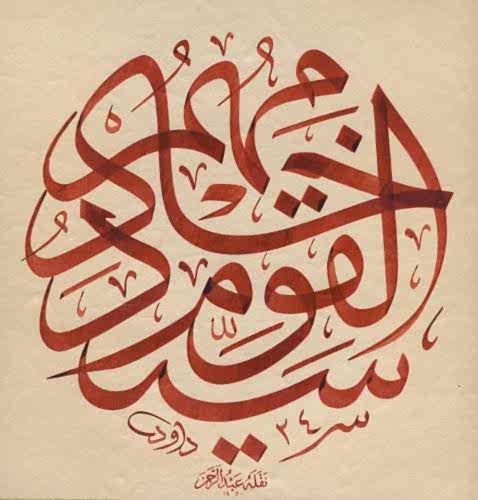 سيد القوم خادمهم
داود
نقله عبد الرحمن